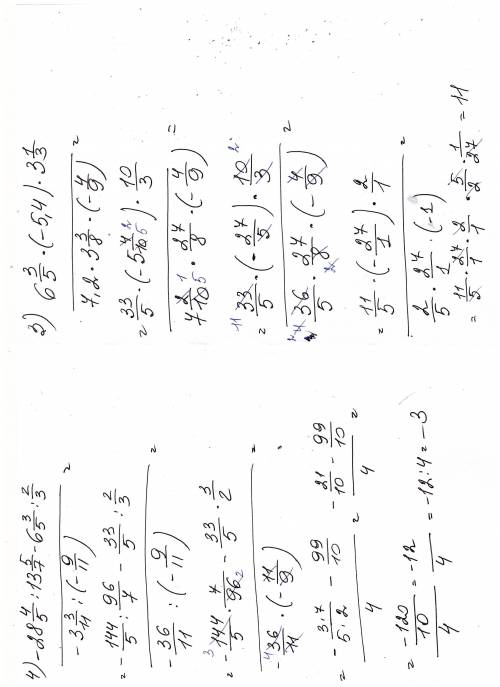 4) -28 4/5 : 13 5/7 - 6 3/5 : 2/3
-3 3/11 : (-9/11) =
= -144/5 : 96/7 - 33/5 : 2/3
-36/11 : (-9/11) =
= -144/5 · 7/96 - 33/5 · 3/2
-36/11 · (-11/9) =
= -3·7/5·2 - 99/10 = -21/10 - 99/10 =
4 4
= -120/10 = -12
4 4 = -12:4 = -3
3) 6 3/5 · (-5,4) · 3 1/3
7,2 · 3 3/8 · (-4/9) =
= 33/5 · (-5 4/10) · 10/3
7 2/10 · 27/8 · (-4/9) =
= 33/5 · (-27/5) · 10/3
36/5 · 27/8 · (-4/9) =
= 11/5 · (-27/1) · 2/1
2/5 · 27/1 · (-1) =
= 11/5 · 27/1 · 2/1 · 5/2 · 1/27 = 11